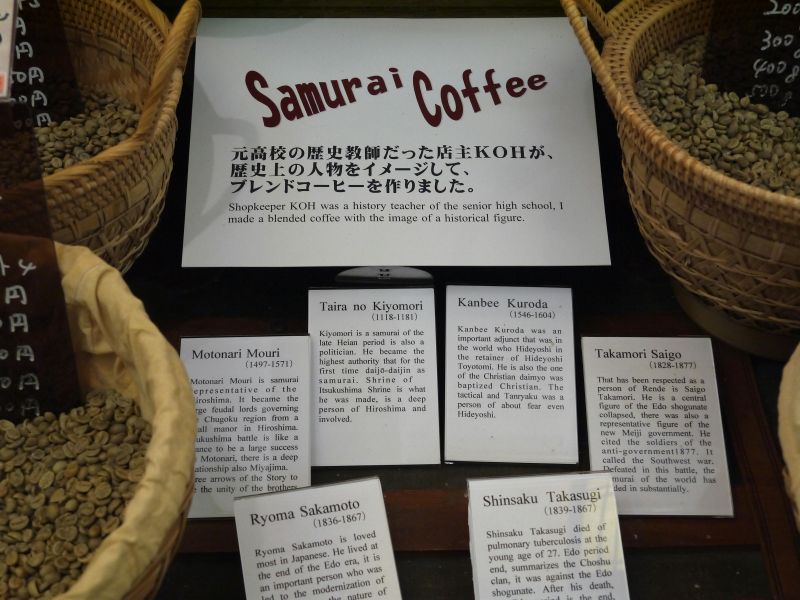 Samurai Coffee
元高校の歴史教師だった店主KOHが、
歴史上の人物をイメージして、
ブレンドコーヒーを作りました。
Shopkeeper KOH was a history teacher of the senior high school, I
made a blended coffee with the image of a historical figure.
Motonari Mouri
(1497-1571)
Motonari Mouri is samurai
representative of the
It became the
feudal lords governing
Chugoku region from a
manor in Hiroshima.
battle is like a
to be a large success
Motonari, there is a deep
also Miyajima.
arrows of the Story to
the unity of the brothers
Taira no Kiyomori
(1118-1181)
Kiyomori is a samurai of the
late Heian period is also a
politician. He became the
highest authority that for the
first time daijō-daijin as
samurai. Shrine of
Itsukushima Shrine is what
he was made, is a deep
person of Hiroshima and
involved.
Kanbee Kuroda
(1546-1604)
Kanbee Kuroda was an
important adjunct that was in
the world who Hideyoshi in
the retainer of Hideyoshi
Toyotomi. He is also the one
of the Christian daimyo was
baptized Christian. The
tactical and Tanryaku was a
person of about fear even
Hideyoshi.
Takamori Saigo
(1828-1877)
That has been respected as a
person of Rende is Saigo
Takamori. He is a central
figure of the Edo shogunate
collapsed, there was also a
representative figure of the
new Meiji government. He
cited the soldiers of the
anti-government1877. It
called the Southwest war.
Defeated in this battle, the
samurai of the world has
in substantially.
Ryoma Sakamoto
(1836-1867)
Ryoma Sakamoto is loved
most in Japanese. He lived at
the end of the Edo era, it is
an important person who was
led to the modernization of
the nature of
Shinsaku Takasugi
(1839-1867)
Shinsaku Takasugi died of
pulmonary tuberculosis at the
young age of 27. Edo period
end, summarizes the Choshu
clan, it was against the Edo
shogunate. After his death,
is the end,
200
300
400g
円
円
円
円
円
円
円
円